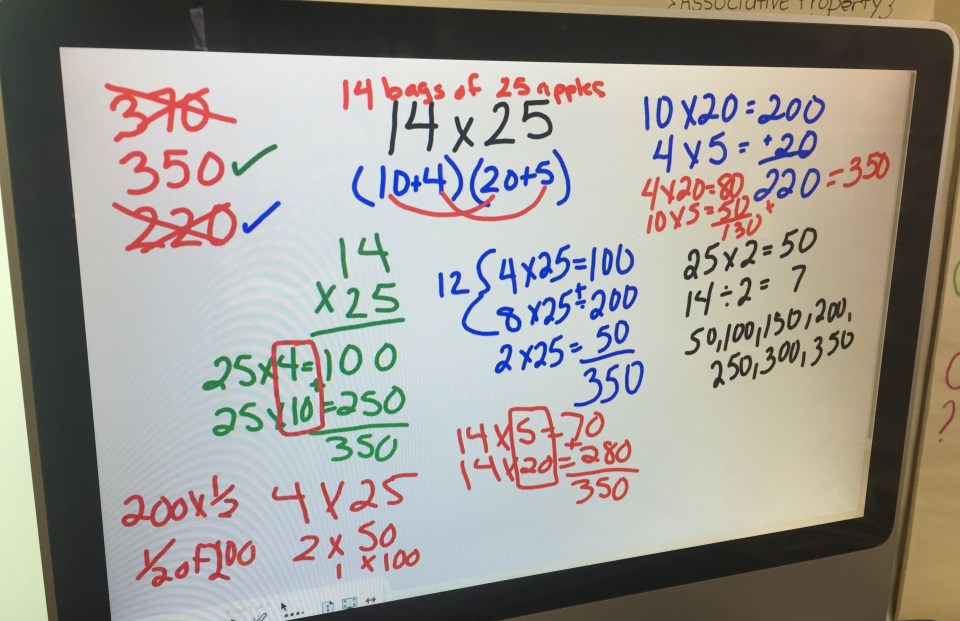 >Associative Property}
14 bags of 25 apples
14 x 25
(10+4)(20+5)
370
350 ✓
220 ✓
10 x 20 = 200
4 x 5 = +20
220 = 350
4 x 20 = 80
10 x 5 = 50 +
130
14
x 25
25 x 4 = 100
+
25 x 10 = 250
350
12 { 4 x 25 = 100
+
8 x 25 = 200
2 x 25 = 50
350
25 x 2 = 50
14 ÷ 2 = 7
50, 100, 150, 200,
250, 300, 350
14 x 5 = 70
+
14 x 20 = 280
350
200 x 1/2
1/2 of
4 x 25
2 x 50
1 x 100
?